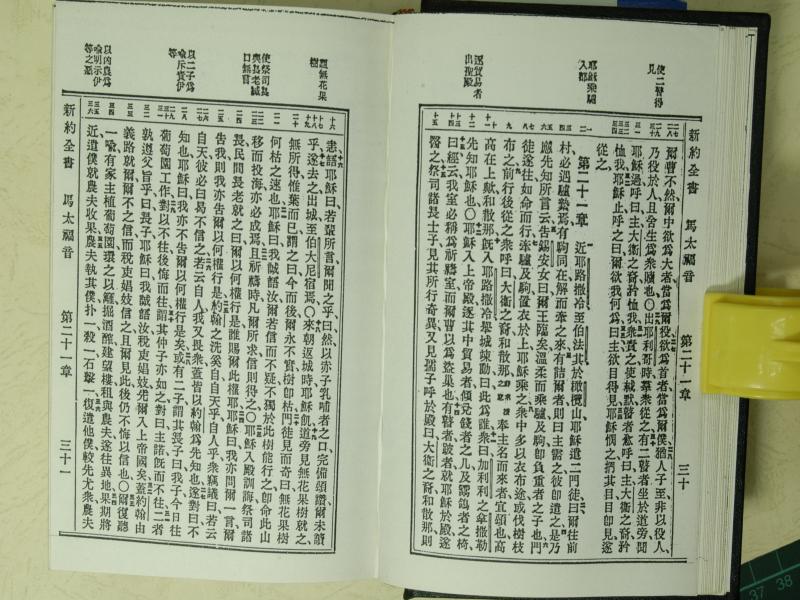 使二瞽得見
耶穌乘驢入都
逐貿易者出聖殿
新約全書 馬太福音 第二十一章 三十
爾曹不然爾中欲為大者當為爾役欲為首者當為爾僕猶人子至非以役人
乃役於人且舍生為眾贖也〇出耶利哥時羣眾從之有二瞽者坐於道旁聞
耶穌過呼曰主大衛之裔矜恤我眾責之使緘默瞽者愈呼曰主大衛之裔矜
恤我耶穌止呼之曰爾欲我何為曰主欲目得見耶穌憫之捫其目目即見遂
從之
第二十一章 近耶路撒冷至伯法其於橄欖山耶穌遣二門徒曰爾往前
村必遇驢縶焉有駒同在解而牽之來有詰爾者則曰主需之彼即遣之是乃
應先知所言云告錫安女曰爾王臨矣溫柔而乘驢及駒即負重者之子也門
徒遂往如命而行牽驢及駒置衣於上耶穌乘之眾中多以衣布途或伐樹枝
布之前行後從之眾呼曰大衛之裔和散那奉主名而來者宜頌也高
高在上歟和散那既入耶路撒冷舉城竦動曰此為誰眾曰加利利之拿撒勒
先知耶穌也〇耶穌入上帝殿逐其中貿易者傾兌錢者之几及鬻鴿者之椅
曰經云我室必稱為祈禱室而爾曹以為盜巢也有瞽者跛者就耶穌於殿遂
醫之祭司諸長士子見其所行奇異又見孺子呼於殿曰大衛之裔和散那則
詛無花果樹
使祭司長與長老緘口無言
以二子為喻斥責伊等
以凶農為喻明示伊等之惡
慍語耶穌曰若輩所言爾聞之乎曰然以赤子乳哺者之口完備頌讚爾未讀
乎遂去之出城至伯大尼宿焉〇來朝返城時耶穌飢道旁見無花果樹就之
無所得惟葉而已謂之曰今而後爾永不實樹即枯門徒見而奇曰無花果樹
何枯之速也耶穌曰我誠語汝爾若信而不疑不獨於此樹能行之即命此山
移而投海亦必成焉且祈禱時凡爾所求信則得之〇耶穌入殿訓誨祭司諸
長民間長老就之曰爾以何權行是誰賜爾此權耶耶穌曰我亦問爾一言爾
告我則我亦告爾以何權行是約翰之洗奚自自天乎自人乎眾竊議曰若云
自天彼必曰曷不信之若云自人我又畏眾蓋皆以約翰為先知也遂對曰不
知也耶穌曰我亦不告爾以何權行是矣或有二子謂其長子曰我子今日往
葡萄園工作對以不往後悔而往謂其仲子亦如之對曰主諾既而不往二者
孰遵父旨乎曰長子耶穌曰我誠語汝稅吏娼妓先爾入上帝國矣蓋約翰由
義路就爾爾不之信而稅吏娼妓信之且爾見此後仍不悔以信也〇爾復聽
一喻有家主植葡萄園環之以籬掘酒醡建望樓租與農夫遂往異地果期將
近遣僕就農夫收果農夫執其僕扑一殺一石擊一復遣他僕較先尤眾農夫
新約全書 馬太福音 第二十一章 三十一
37 38